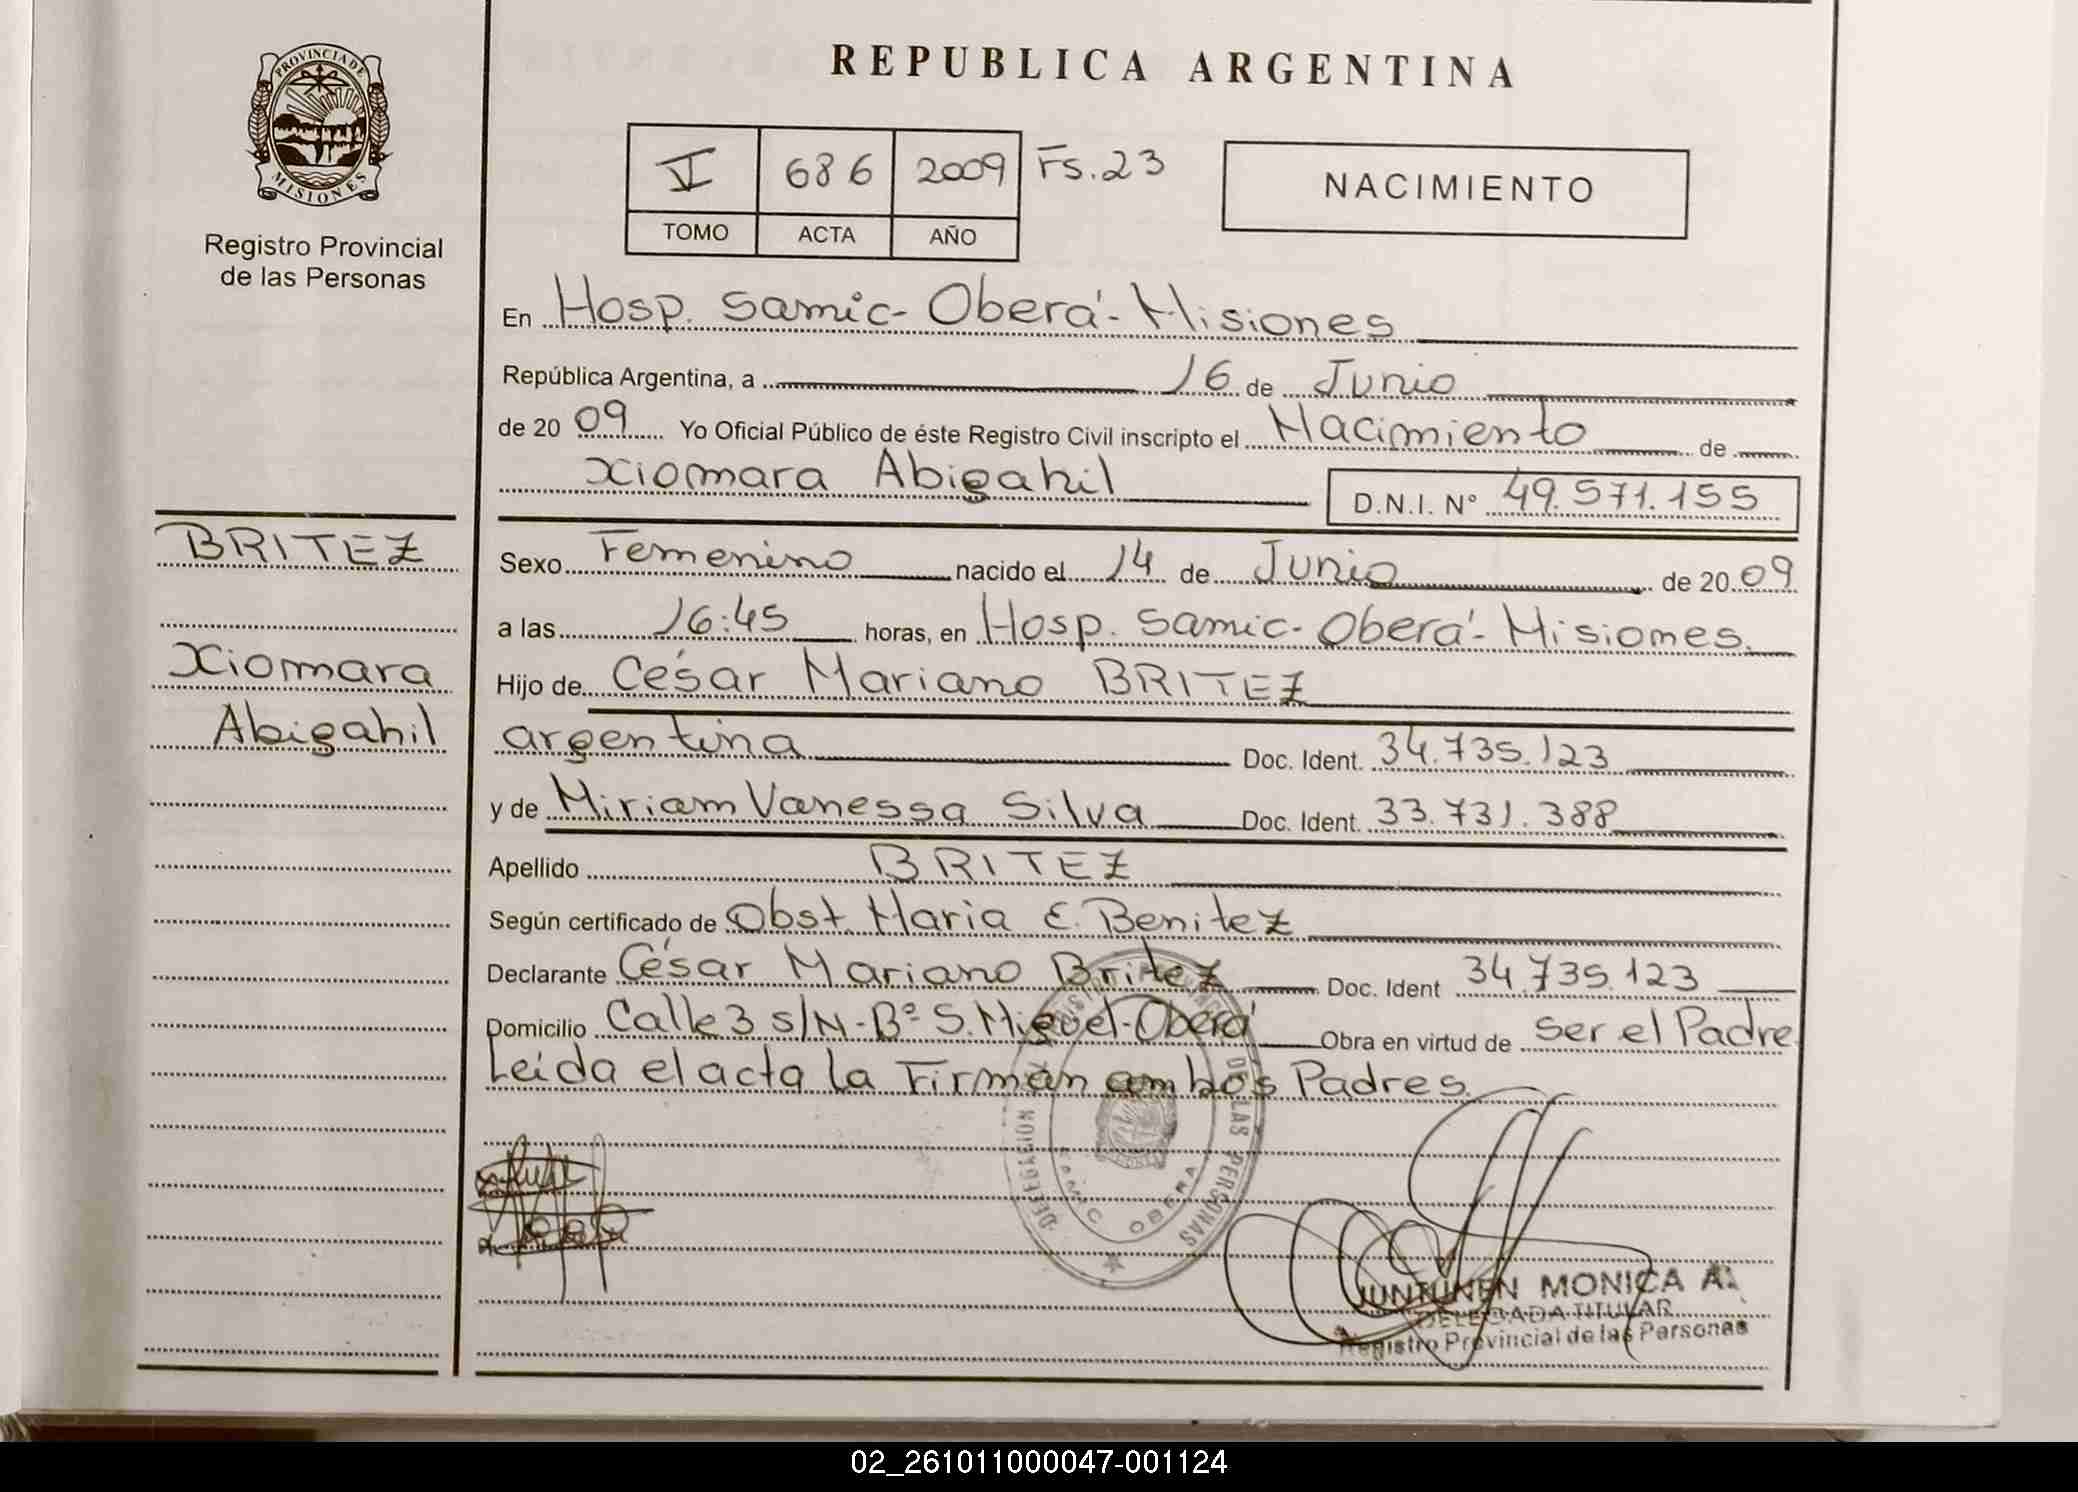 PROVINCIA DE
MISIONES
Registro Provincial
de las Personas
REPUBLICA ARGENTINA
686 2009 Fs.23
TOMO ACTA AÑO
NACIMIENTO
En Hosp. Samic- Oberá- Misiones
República Argentina, a 16 de Junio
de 2009 Yo Oficial Público de éste Registro Civil inscripto el Nacimiento de
Xiomara Abigahil D.N.I. N° 49.571.155
BRITEZ
Xiomara
Abigahil
Sexo Femenino nacido el 14 de Junio de 2009
a las 16:45 horas, en Hosp. Samic- Oberá- Misiones.
Hijo de César Mariano BRITEZ
argentina Doc. Ident. 34.735.123
y de Miriam Vanessa Silva Doc. Ident. 33.731.388
Apellido BRITEZ
Según certificado de Obst. Maria E. Benitez
Declarante César Mariano Britez Doc. Ident 34.735.123
Domicilio Calle 3 s/N- B° S. Miguel- Oberá Obra en virtud de Ser el Padre
Leida el acta la Firman ambos Padres.
DELEGACION
DE LAS PERSONAS
SAMIC OBERA
JUNTUNEN MONICA A.
DELEGADA TITULAR
Registro Provincial de las Personas
02_261011000047-001124